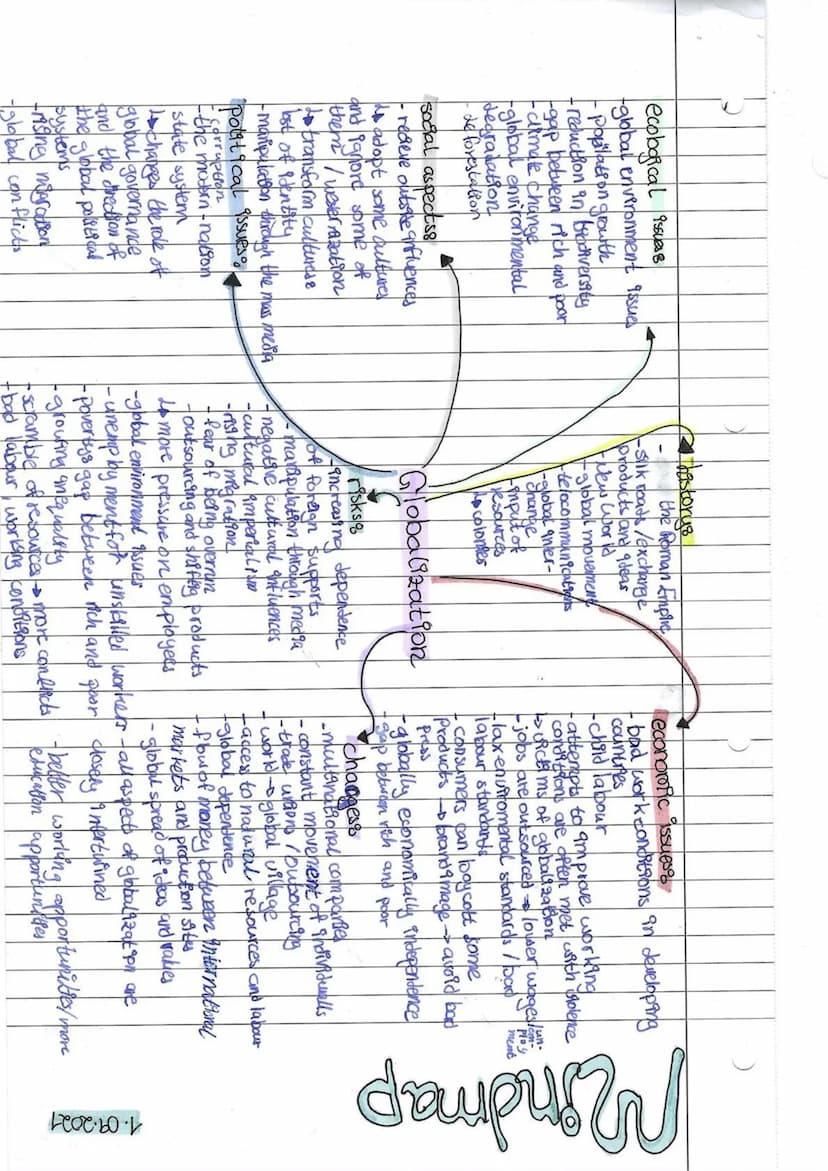 Mindmap
1.09.2021
Globalization
ecological issues
- global environment issues
- population growth
- reduction in biodiversity
- gap between rich and poor
- climate change
- global environmental
degradation
- deforestation
history:
- the Roman Empire
- silk roads / exchange
products and ideas
- New World
- global movement
- telecommunications
- global inter-
change
- input of
resources
↳ colonies
economic issues:
- bad work conditions in developing
countries
- child labour
- attempts to improve working
conditions are often met with violence
↳ victims of globalization
- jobs are outsourced → lower wages / un-
em-
ploy
ment
- lax enviromental standards / bad
labour standards
- consumers can boycott some
products → brand image → avoid bad
press
- globally economically independence
- gap between rich and poor
social aspects:
- receive outside influences
↳ adopt some cultures
and ignore some of
them / westernization
↳ transform cultures
lost of identity
- manipulation through the mass media
political issues:
corruption
- the modern-nation
state system
↳ changes the role of
global governance
and the direction of
the global political
systems
- rising migration
- global conflicts
risks:
- increasing dependence
of foreign supports
- manipulation through media
- negative cultural influences
- cultural imperialism
- rising migration
- fear of being overrun
- outsourcing and shifting products
↳ more pressure on employees
- global environment issues
- unemployment for unskilled workers
- poverty gap between rich and poor
- growing inequality
- scramble of resources → more conflicts
- bad labour / working conditions
changes:
- multinational companies
- constant movement of individuals
- trade unions / outsourcing
- world → global village
- access to natural resources and labour
- global dependence
- flow of money between international
markets and production sites
- global spread of ideas and values
- all aspects of globalization are
closely intertwined
- better working opportunities / more
education opportunities